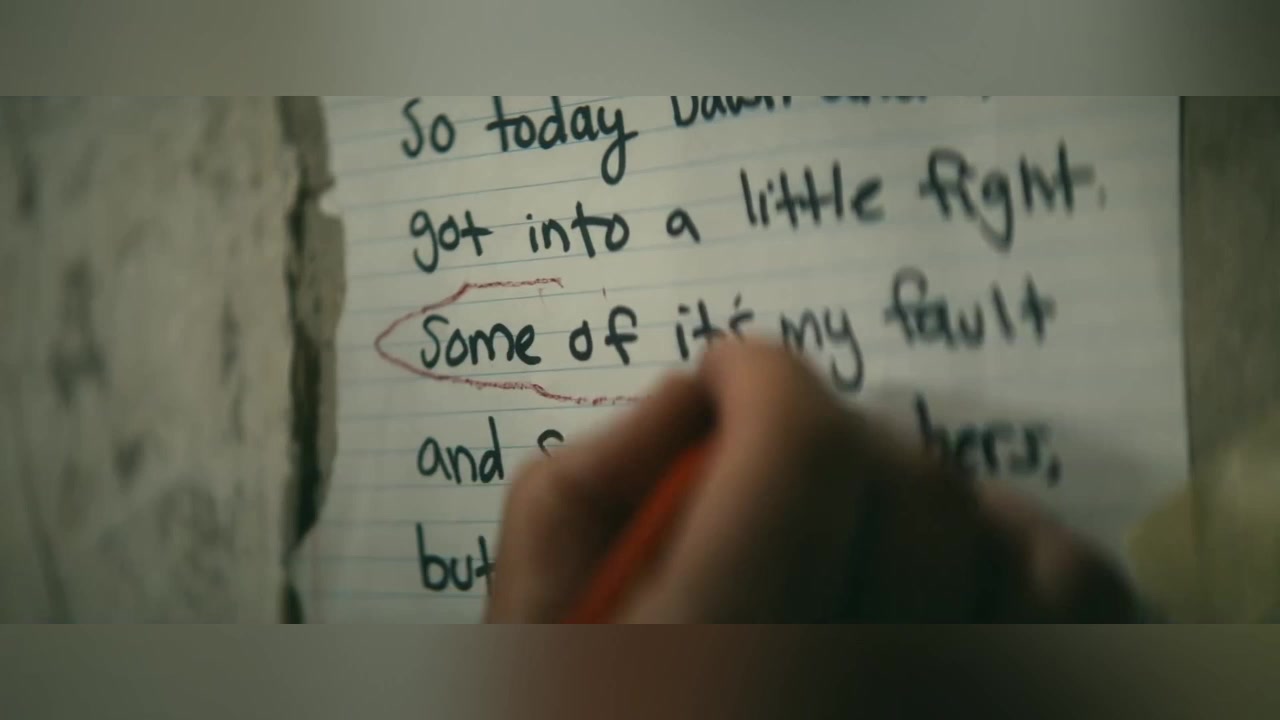 So today Dawn
got into a little fight.
Some of it's my fault
and hers,
but